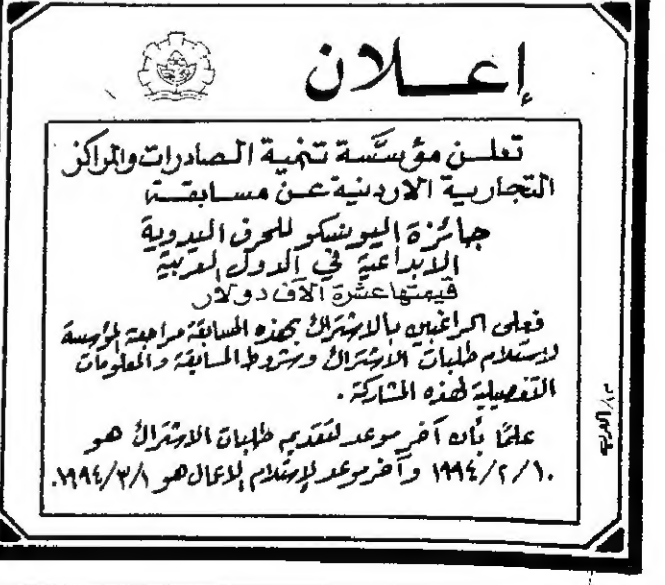 إعـــلان
تعلـن مؤسَّسة تنمية الصادرات والمراكز
التجارية الاردنية عـن مسـابقـة
جائزة اليونيسكو للحرف اليدوية
الابداعية في الدول العربية
قيمتها عشرة آلاف دولار
فعلى الراغبين بالاشتراك بهذه المسابقة مراجعة المؤسسة
لاستلام طلبات الاشتراك وشروط المسابقة والمعلومات
التفصيلية لهذه المشاركة .
علمًا بأن آخر موعد لتقديم طلبات الاشتراك هو
١٩٩٤/٢/١٠ وآخر موعد لإستلام الاعمال هو ١٩٩٤/٣/١.